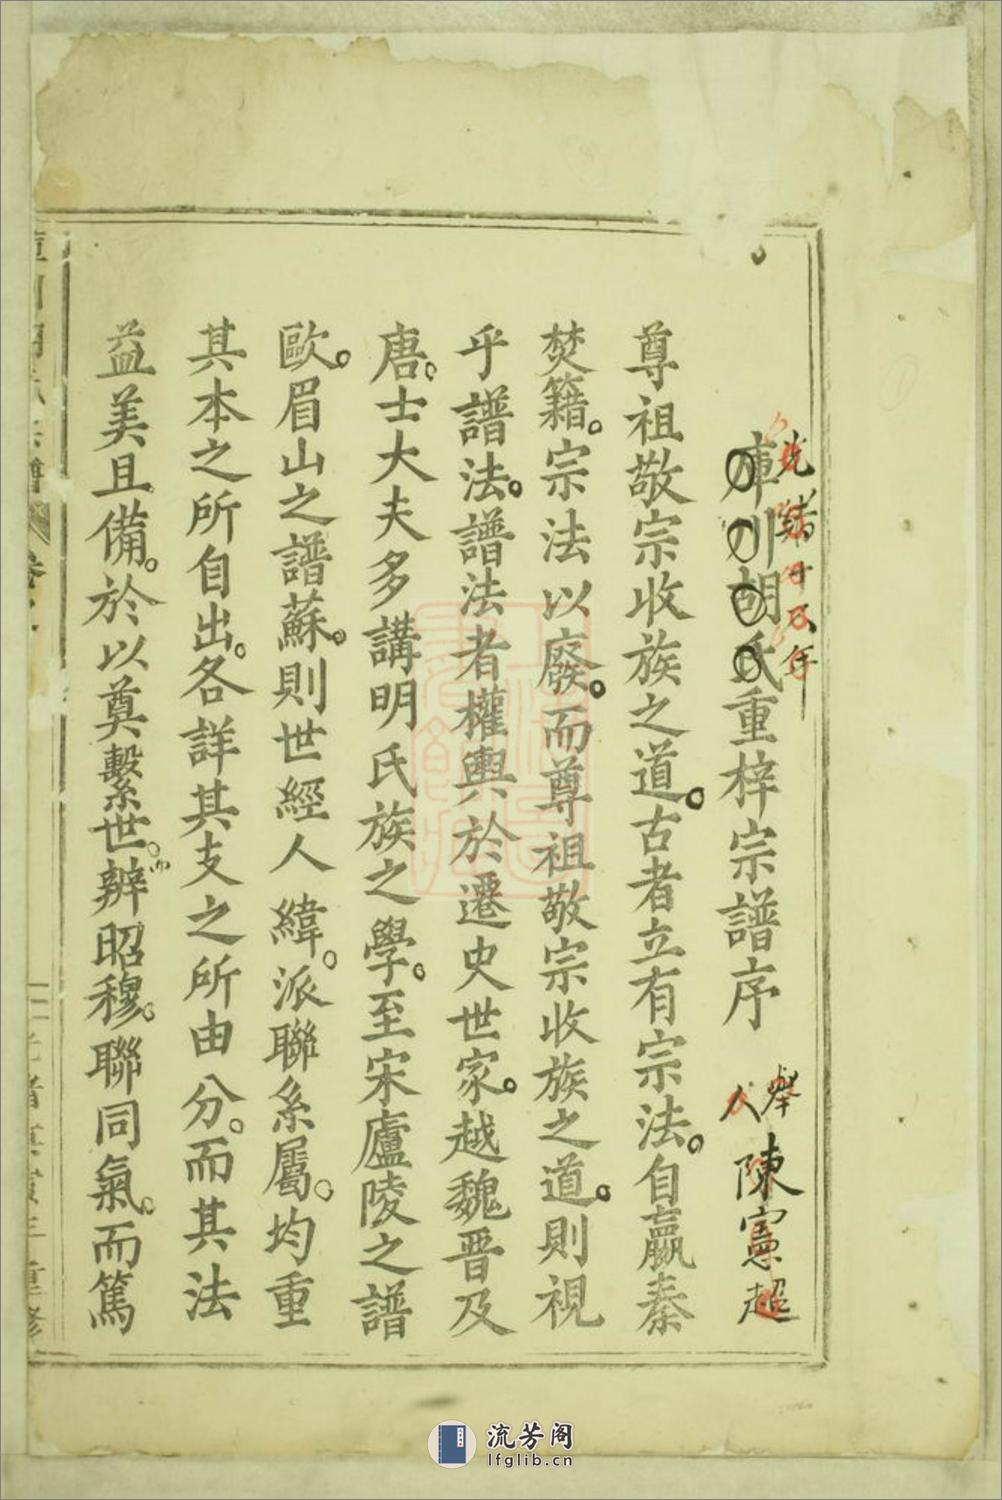 光緒十五年
庫川胡氏重梓宗譜序
舉人
陳憲超
尊祖敬宗收族之道。古者立有宗法。自嬴秦
焚籍。宗法以廢。而尊祖敬宗收族之道。則視
乎譜法。譜法者權輿於遷史世家。越魏晉及
唐。士大夫多講明氏族之學。至宋廬陵之譜
歐。眉山之譜蘇。則世經人緯。派聯系屬。均重
其本之所自出。各詳其支之所由分。而其法
益美且備。於以奠繫世。辨昭穆。聯同氣。而篤
流芳阁
lfglib.cn